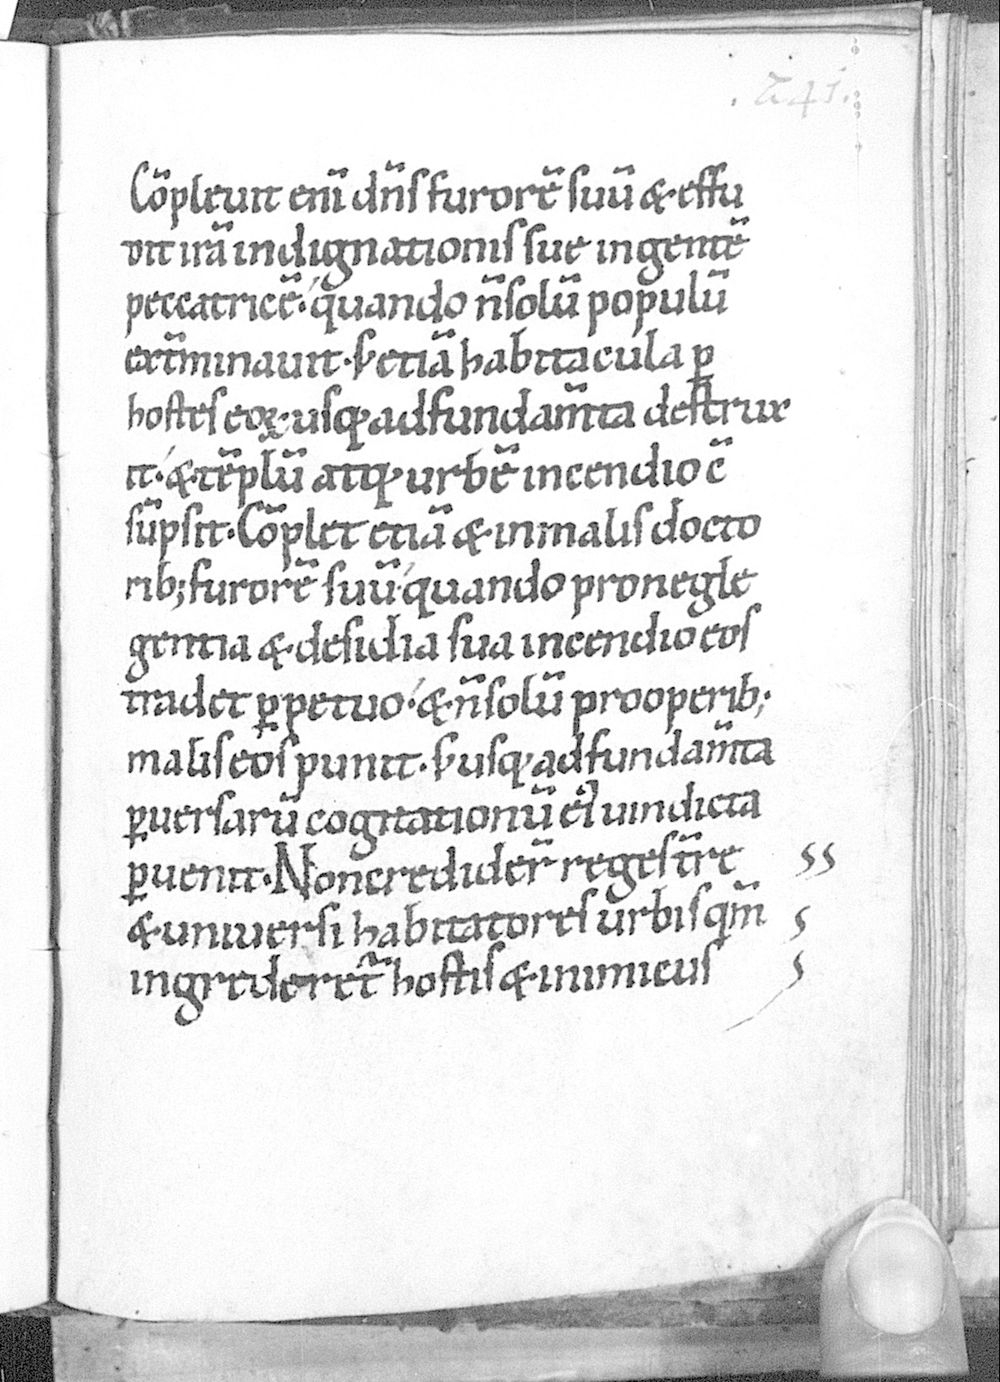 .241.
Cõpleuit enĩ dñs furorẽ suũ & effu
dit irã indignationis sue in gentẽ
peccatricẽ. quando ñ solũ populũ
ext̃minauit. s; etiã habitacula ꝑ
hostes eoꝝ usq; ad fundam̃ta destrux
it. & tẽplũ atq; urbẽ incendio c̃
sũpsit. Cõplet etiã & in malis docto
rib; furorẽ suũ quando pro negle
gentia & desidia sua incendio eos
tradet ꝑpetuo. & ñ solũ pro operib;
malis eos punit. s; usq; ad fundam̃ta
ꝑuersarũ cogitationũ ei' uindicta
ꝑuenit. Non credider̃ reges t̃re
& uniuersi habitatores urbis qm̃
ingrederet̃ hostis & inimicus